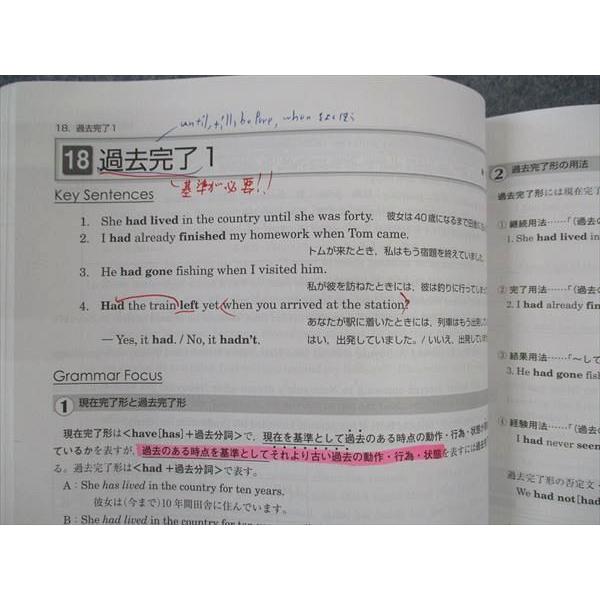 until, till, before, when などに
18. 過去完了1
18 過去完了1
基準が必要!!
Key Sentences
1. She had lived in the country until she was forty. 彼女は40歳になるまで田舎に
2. I had already finished my homework when Tom came.
トムが来たとき，私はもう宿題を終えていました。
3. He had gone fishing when I visited him.
私が彼を訪ねたときには，彼は釣りに行ってしま
4. Had the train left yet when you arrived at the station?
あなたが駅に着いたときには，列車はもう出発し
— Yes, it had. / No, it hadn't. はい，出発していました。/ いいえ，出発していま
Grammar Focus
1 現在完了形と過去完了形
現在完了形は<have[has]+過去分詞>で，現在を基準として過去のある時点の動作・行為・状態が
ているかを表すが，過去のある時点を基準としてそれより古い過去の動作・行為・状態を表すには過去
る。過去完了形は<had+過去分詞>で表す。
A : She has lived in the country for ten years.
彼女は（今まで）10年間田舎に住んでいます。
B : She had lived in the country for ten
2 過去完了形の用法
過去完了形には現在完
① 継続用法……「（過去の
1. She had lived in
② 完了用法……「（過去の
2. I had already fin
③ 結果用法……「～して
3. He had gone fish
④ 経験用法……「（過去の
I had never seen
過去完了形の否定文・
We had not[had